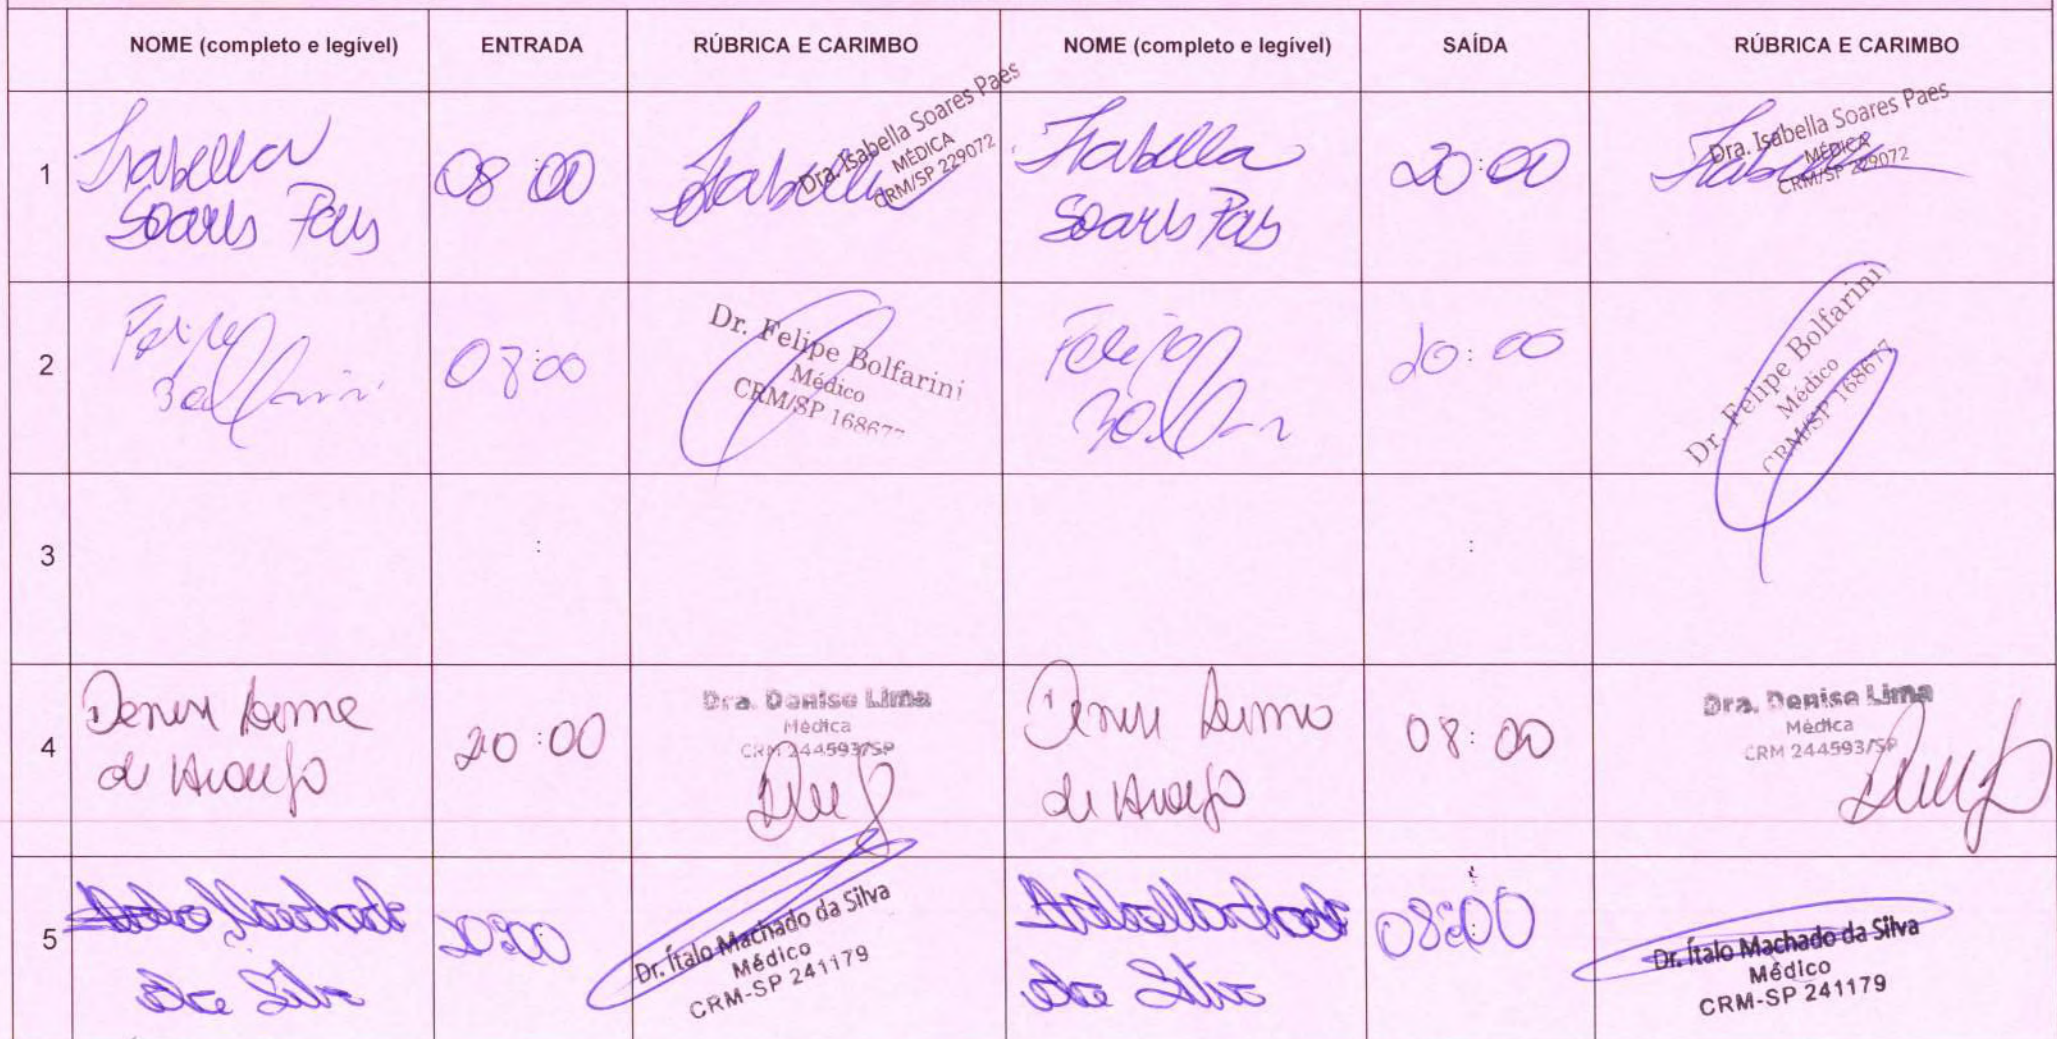 NOME (completo e legível) ENTRADA RÚBRICA E CARIMBO NOME (completo e legível) SAÍDA RÚBRICA E CARIMBO
1
Isabella
Soares Paes
08:00
Isabella
Dra. Isabella Soares Paes
MÉDICA
CRM/SP 229072
Isabella
Soares Paes
20:00
Isabella
Dra. Isabella Soares Paes
MÉDICA
CRM/SP 229072
2
Felipe
Bolfarini
08:00
Dr. Felipe Bolfarini
Médico
CRM/SP 168677
Felipe
20:00
Dr. Felipe Bolfarini
Médico
CRM/SP 168677
3
:
:
4
Denise Lima
de Araujo
20:00
Dra. Denise Lima
Médica
CRM 244593/SP
Denise Lima
de Araujo
08:00
Dra. Denise Lima
Médica
CRM 244593/SP
5
Italo Machado
da Silva
20:00
Dr. Ítalo Machado da Silva
Médico
CRM-SP 241179
Italo Machado
da Silva
08:00
Dr. Ítalo Machado da Silva
Médico
CRM-SP 241179